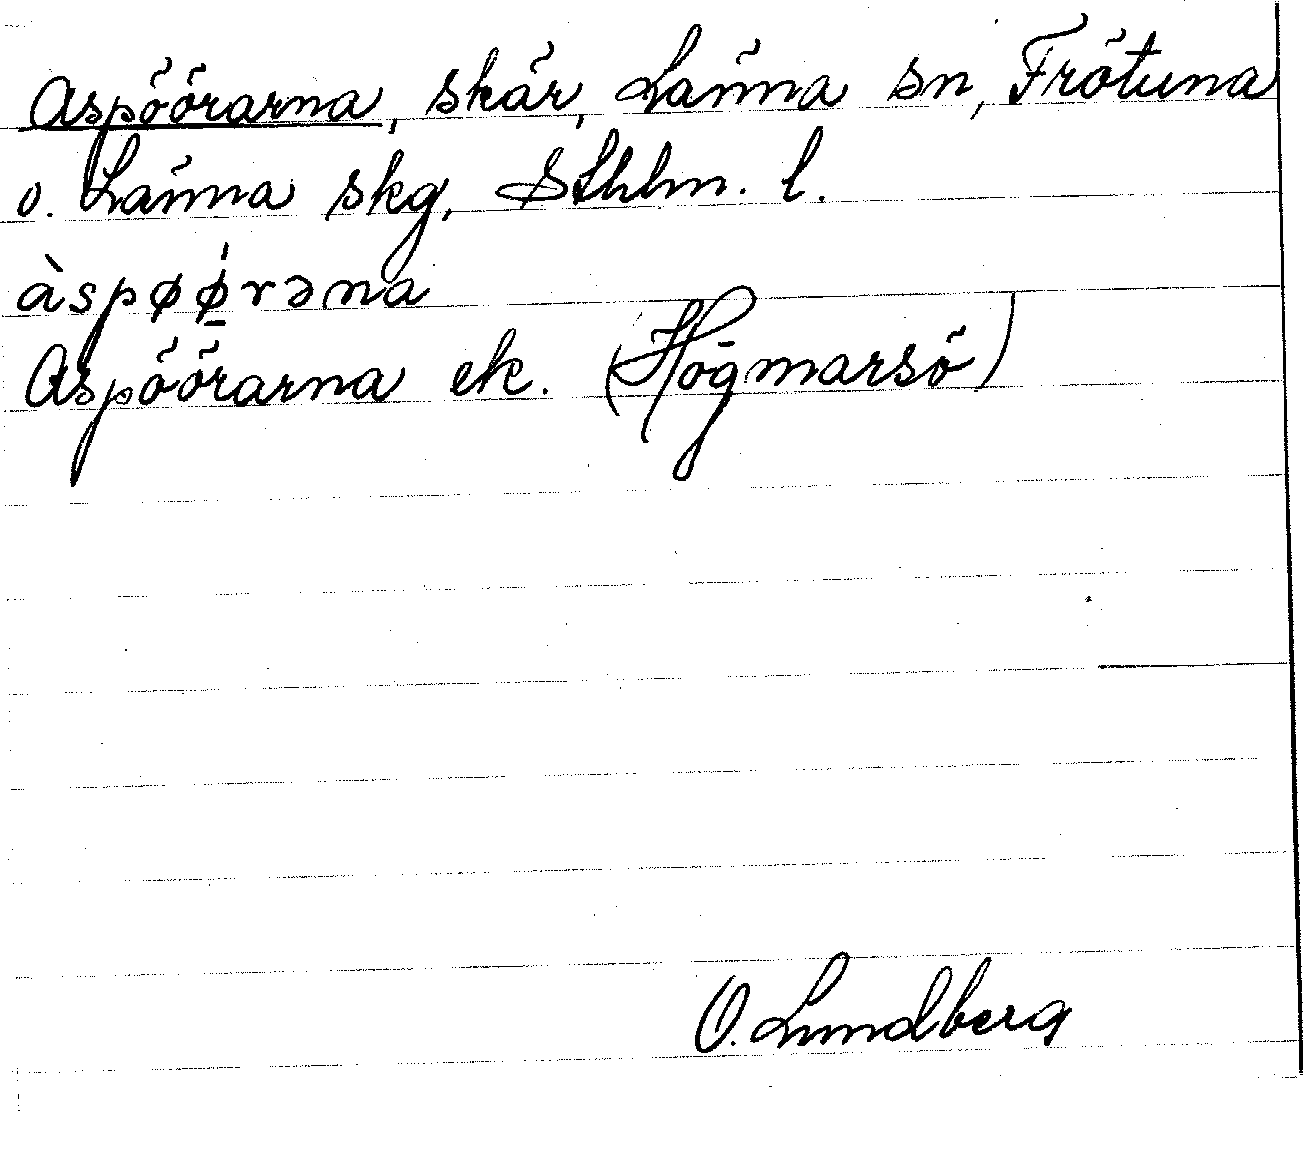 Aspöörarna, skär, Länna sn, Frötuna
o. Länna skg, Sthlm. l.
àspøǿ̣rəna
Aspöörarna ek. (Högmarsö)
O. Lundberg